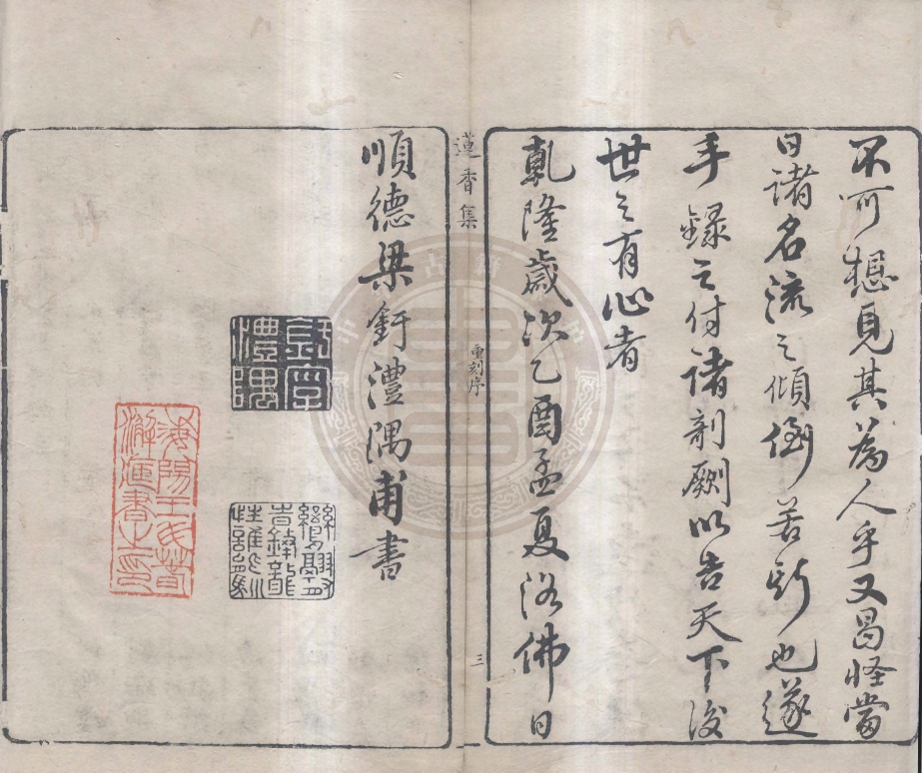 不可想見其為人乎又曷怪當
日諸名流之傾倒若斯也遂
手錄之付諸剞劂以告天下後
世之有心者
乾隆歲次乙酉孟夏浴佛日
蓮香集
重刻序
三
順德梁釪澧隅甫書
釪字
澧隅